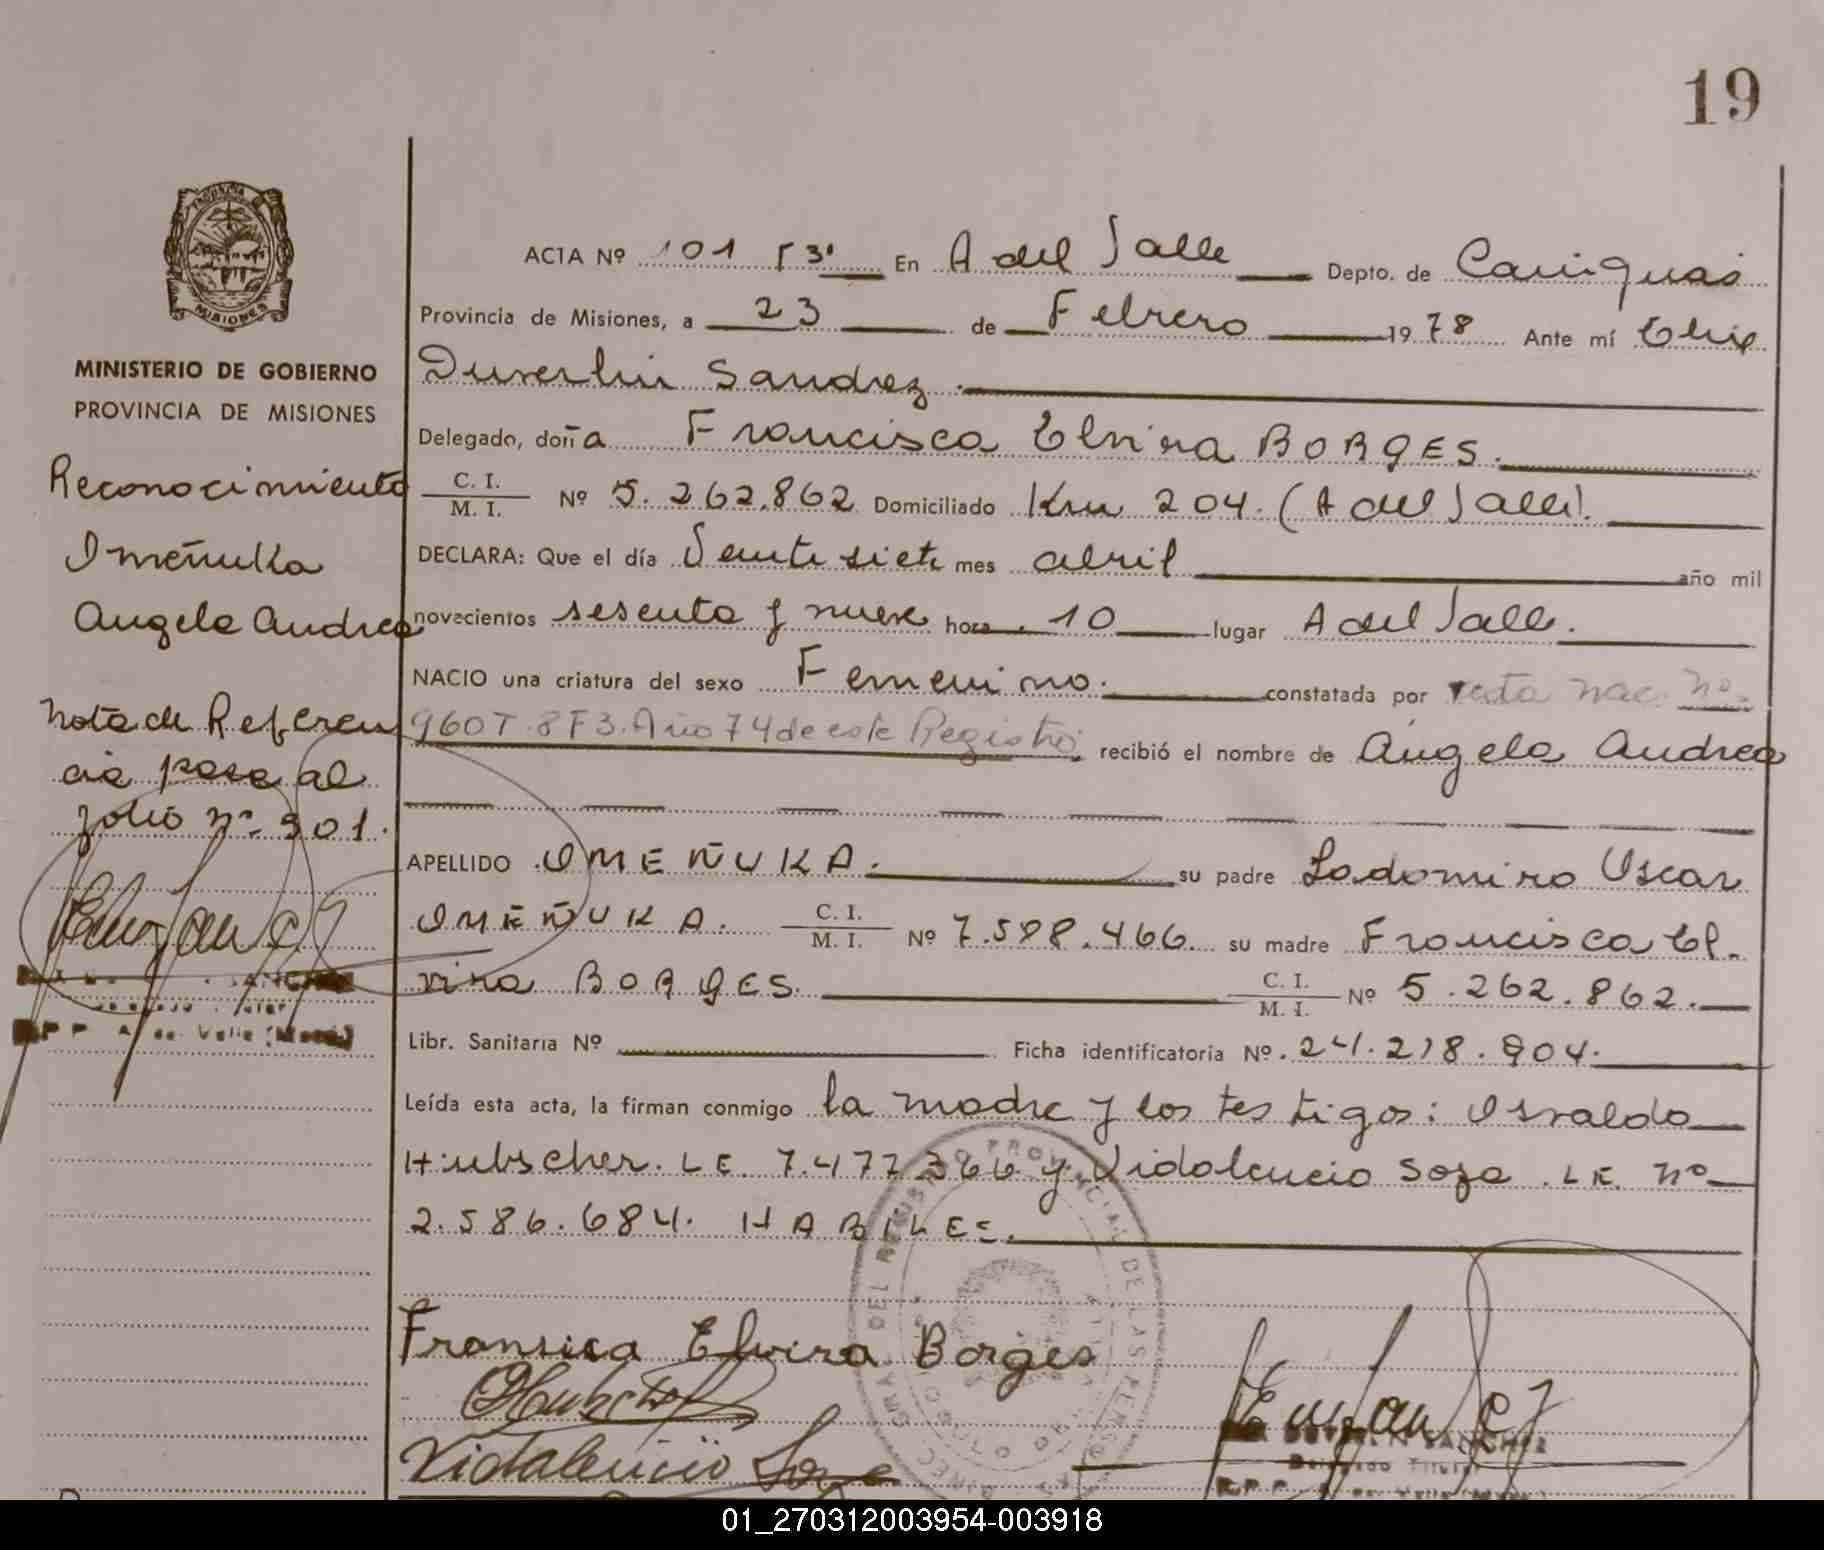 19
PROVINCIA
MISIONES
MINISTERIO DE GOBIERNO
PROVINCIA DE MISIONES
Reconocimiento
Omeñuka
Angela Andrea
Nota de Referen
cia pasa al
folio nº 301.
ACTA Nº 101 T3º En A del Valle Depto. de Cainguas
Provincia de Misiones, a 23 de Febrero 1978 Ante mí
Duverlin Sanchez
Delegado, doña Francisca Elvira BORGES.
C. I. / M. I. Nº 5.262.862 Domiciliado Km 204. (A del Valle).
DECLARA: Que el día Veinte siete mes abril año mil
novecientos sesenta y nueve hora 10 lugar A del Valle.
NACIO una criatura del sexo Femenino. constatada por acta nac. Nº
960 T.8 F3. Año 74 de este Registro. recibió el nombre de Angela Andrea
APELLIDO OMEÑUKA. su padre Ladomiro Oscar
OMEÑUKA. C. I. / M. I. Nº 7.598.466 su madre Francisca El
vira BORGES. C. I. / M. I. Nº 5.262.862.
Libr. Sanitaria Nº Ficha identificatoria Nº. 21.218.904.
Leída esta acta, la firman conmigo la madre y los testigos: Osvaldo
Hubscher. LE 7.477.366 y Vidalencio Soza. LE. Nº
2.586.684. HABILES.
Fransica Elvira Borges
Vidalencio
SANCHEZ
Delegado Titular
01_270312003954-003918